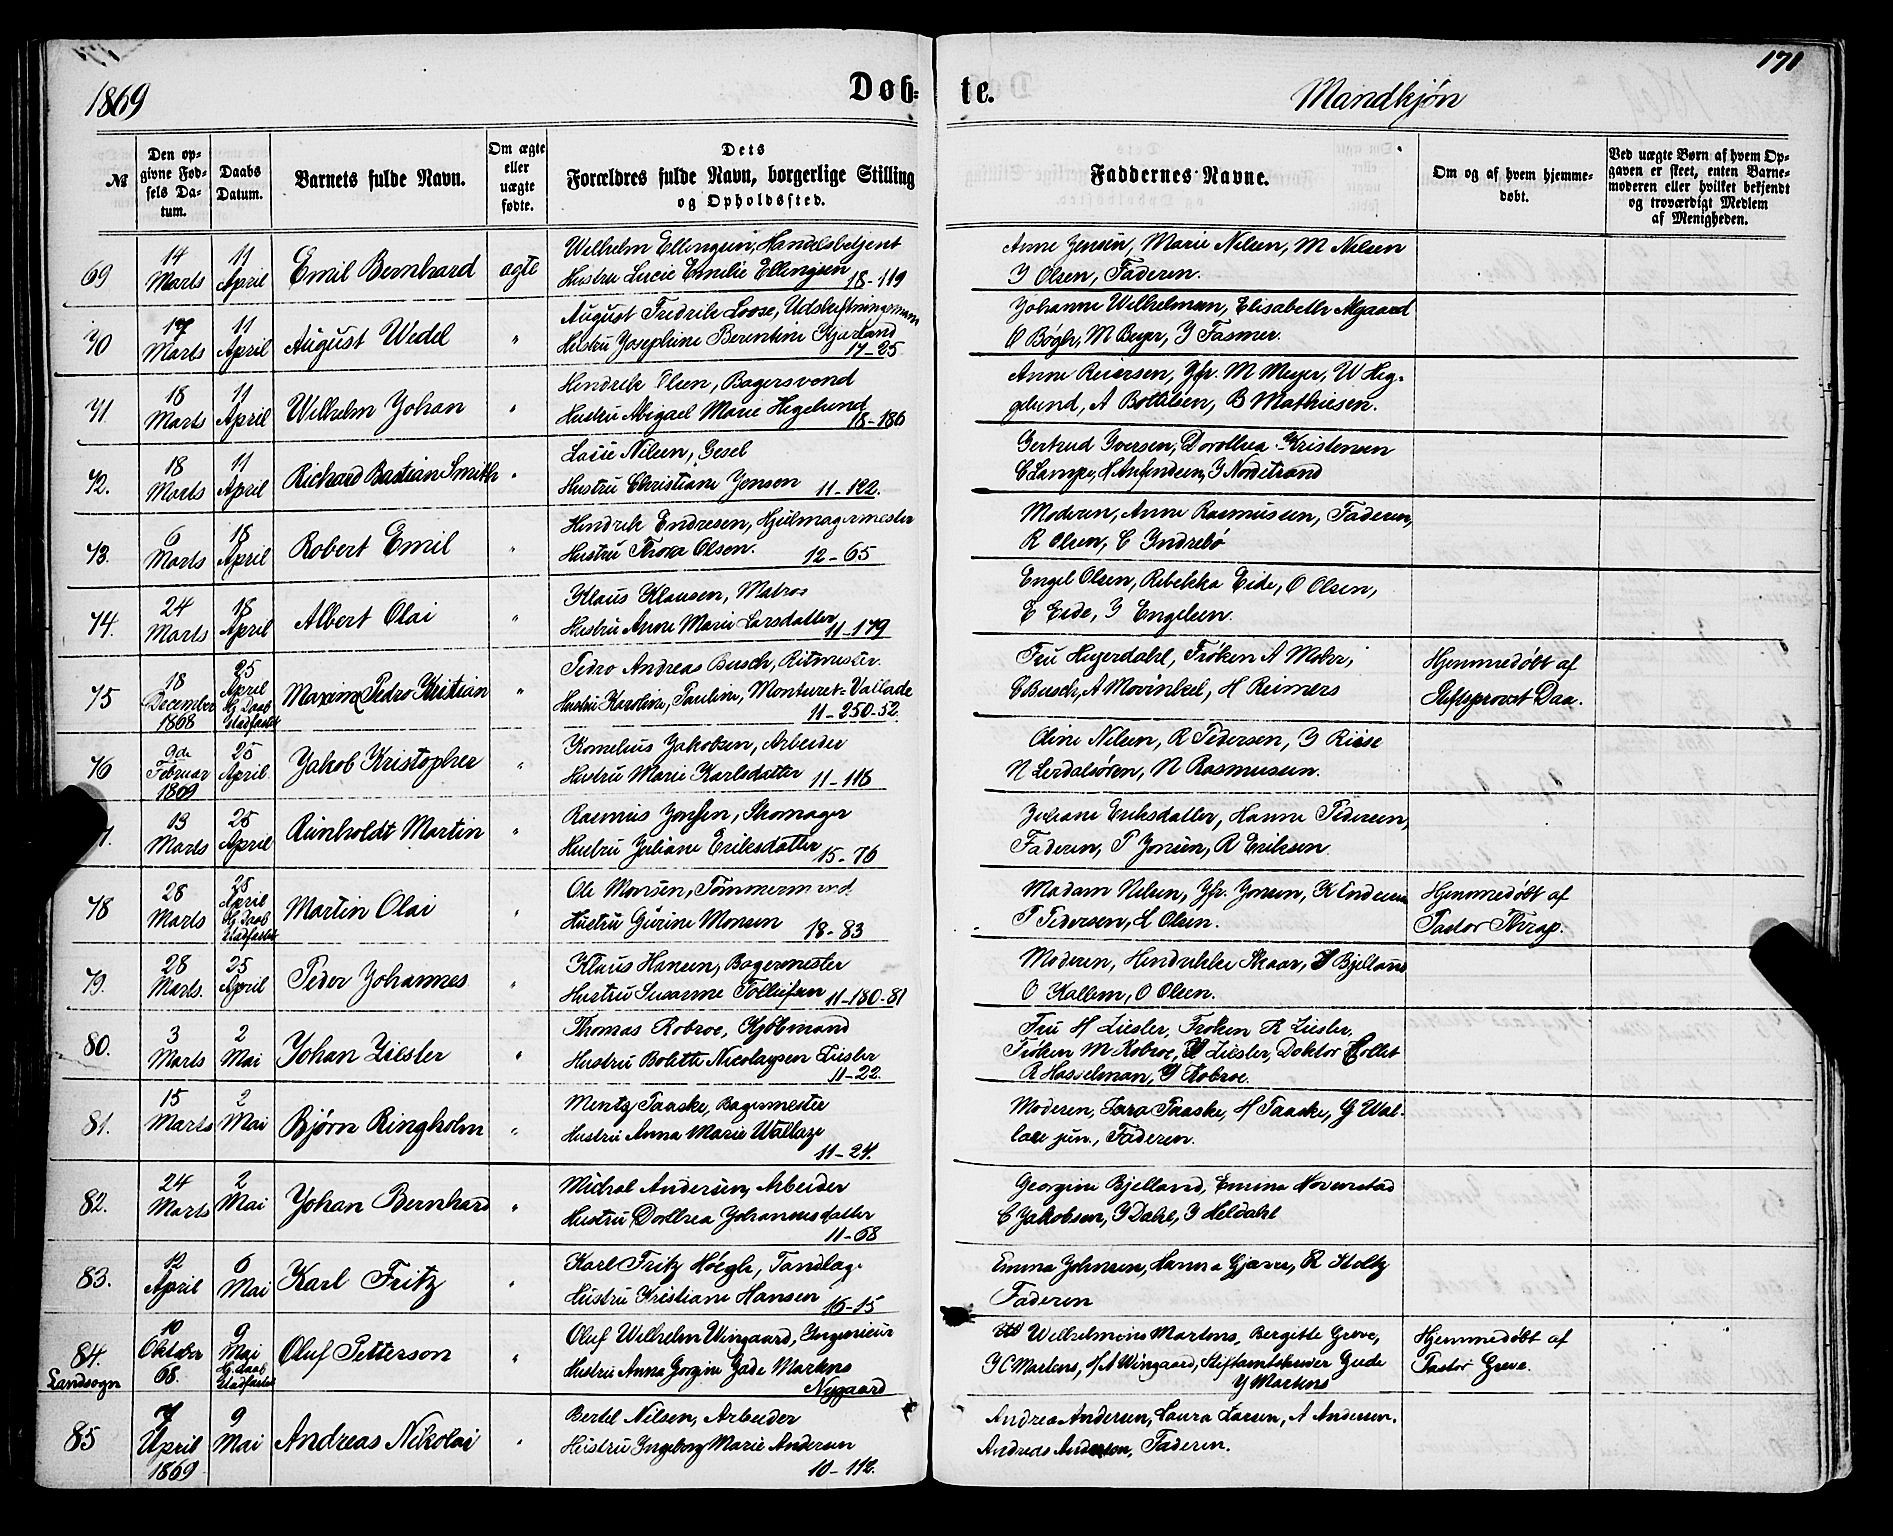 171
1869
Døb-
te.
Mandkjøn
№
Den op-
givne Fød-
sels Da-
tum.
Daabs
Datum.
Barnets fulde Navn.
Om ægte
eller
uægte
fødte.
Dets
Forældres fulde Navn, borgerlige Stilling
og Opholdssted.
Faddernes Navne.
Om og af hvem hjemme-
døbt.
Ved uægte Børn af hvem Op-
gaven er skeet, enten Barne-
moderen eller hvilket bekjendt
og troværdigt Medlem
af Menigheden.
69 14 Marts 11 April Emil Bernhard ægte
Wilhelm Ellingsen, Handelsbetjent
Hustru Lucie Emilie Ellingsen 18-119
Anne Jensen, Marie Nilsen, M Nilsen
I Olsen, Faderen.
70 17 Marts 11 April August Wedel "
August Fredrik Loose, Udskiftningsmann
Hustru Josephine Berentine Kjerland
17-25
Johanne Wilhelmsen, Elisabeth Aagaard
O Bøgh, M Beyer, I Fasmer.
71. 18 Marts 11 April Wilhelm Johan "
Hendrik Olsen, Bagersvend
Hustru Abigael Marie Hegelund
18-186
Anne Reiersen, Jfr. M Meyer, W Heg-
gelund, A Bottelsen, B Mathiesen.
72. 18 Marts 11 April Richard Bastian Smith "
Nilsen, Gesel
Hustru Christiane Jensen 11-122.
Gertrud Iversen, Dorothea Kristensen
C Lampe, H I Nordstrand
73. 6 Marts 18 April Robert Emil "
Hendrik Endresen, Hjulmagermester
Hustru Thora Olsen. 12-65
Moderen, Anne Rasmussen, Faderen,
R Olsen, C Indrebø
74. 24 Marts 18 April Albert Olai "
Klaus Klausen, Matros
Hustru Anne Marie Larsdatter 11-179
Engel Olsen, Rebekka Eide, O Olsen,
E Eide, I Engelsen.
75 18 December 1868 25 April Hj Daab Stadfæstet Maxime Pedro Kristian "
Pedro Andreas Busch, Ritmester.
Hustru Karoline, Pauline, Monturet-Vallade
11-250-52.
Fru Heyerdahl, Frøken A Mohr,
C Busch, A Movinkel, H Reimers
Hjemmedøbt af
Stiftsprovst Daa.
76 9de Februar 1869 25 April Jakob Kristopher "
Kornelius Jakobsen, Arbeider
Hustru Marie Karlsdatter 11-118
Oline Nilsen, R Pedersen, I Riise
N Lerdalsøren, N Rasmussen.
13 Marts 25 April Reinholdt Martin "
Rasmus Jonsen, Skomager
Hustru Juliane Eriksdatter 15-76
Juliane Eriksdatter, Hanne Pedersen,
Faderen, P Jonsen, R Eriksen
78 28 Marts 25 April Hj Daab Stadfæstet Martin Olai "
Ole Monsen, Tømmermand.
Hustru Gurine Monsen 18-83
Madam Nilsen, Jfr. Jonsen, K Andersen
P Pedersen, L Olsen.
Hjemmedøbt af
Pastor Thrap.
79. 28 Marts. 25 April Peder Johannes "
Klaus Hansen, Bagermester
Hustru Susanne Tollefsen 11-180-81
Moderen, Hendrikke Skaar, I Bjelland
O Kallem, O Olsen.
80. 3 Marts 2 Mai Johan Ziesler "
Thomas Robroe, Kjøbmand
Hustru Bolette Nicolaysen Ziesler
11-22.
Fru H Ziesler, Frøken R Ziesler,
Frøken M Robroe, Ziesler, Doktor Collet
R Hasselman, I Robroe.
81. 15 Marts 2 Mai Bjørn Ringholm "
Mentz Paaske, Bagermester
Hustru Anna Marie Wallaze
11-24.
Moderen, Lara Paaske, H Paaske, G Wal-
lace jun., Faderen.
82. 24 Marts 2 Mai Johan Bernhard "
Michal Andersen, Arbeider
Hustru Dorthea Johannesdatter
11-68
Georgine Bjelland, Emma Hovenstad
C Jakobsen, I Dahl, I Heldahl
83. 12 April 6 Mai Karl Fritz "
Karl Fritz Høegh, Tandlæge
Hustru Kristiane Hansen 16-15
Emma Johnsen, Hanna Gjæver, R Stoltz
Faderen
84. Landsogn 10 Oktober 68. 9 Mai Hj. Daab Stadfæstet Oluf Petterson "
Oluf Wilhelm Wingaard, Ingeniør
Hustru Anna Gorgine Jade Martens
Nygaard
Wilhelmine Martens, Bergitte Greve,
I C Martens, A Wingaard, Stiftamtskriver Gude
J Martens
Hjemmedøbt af
Pastor Greve.
85 7 April 1869 9 Mai Andreas Nikolai "
Bertel Nilsen, Arbeider
Hustru Ingeborg Marie Andersen
10-112.
Andrea Andersen, Laura Larsen, A Andersen.
Andreas Andersen, Faderen.